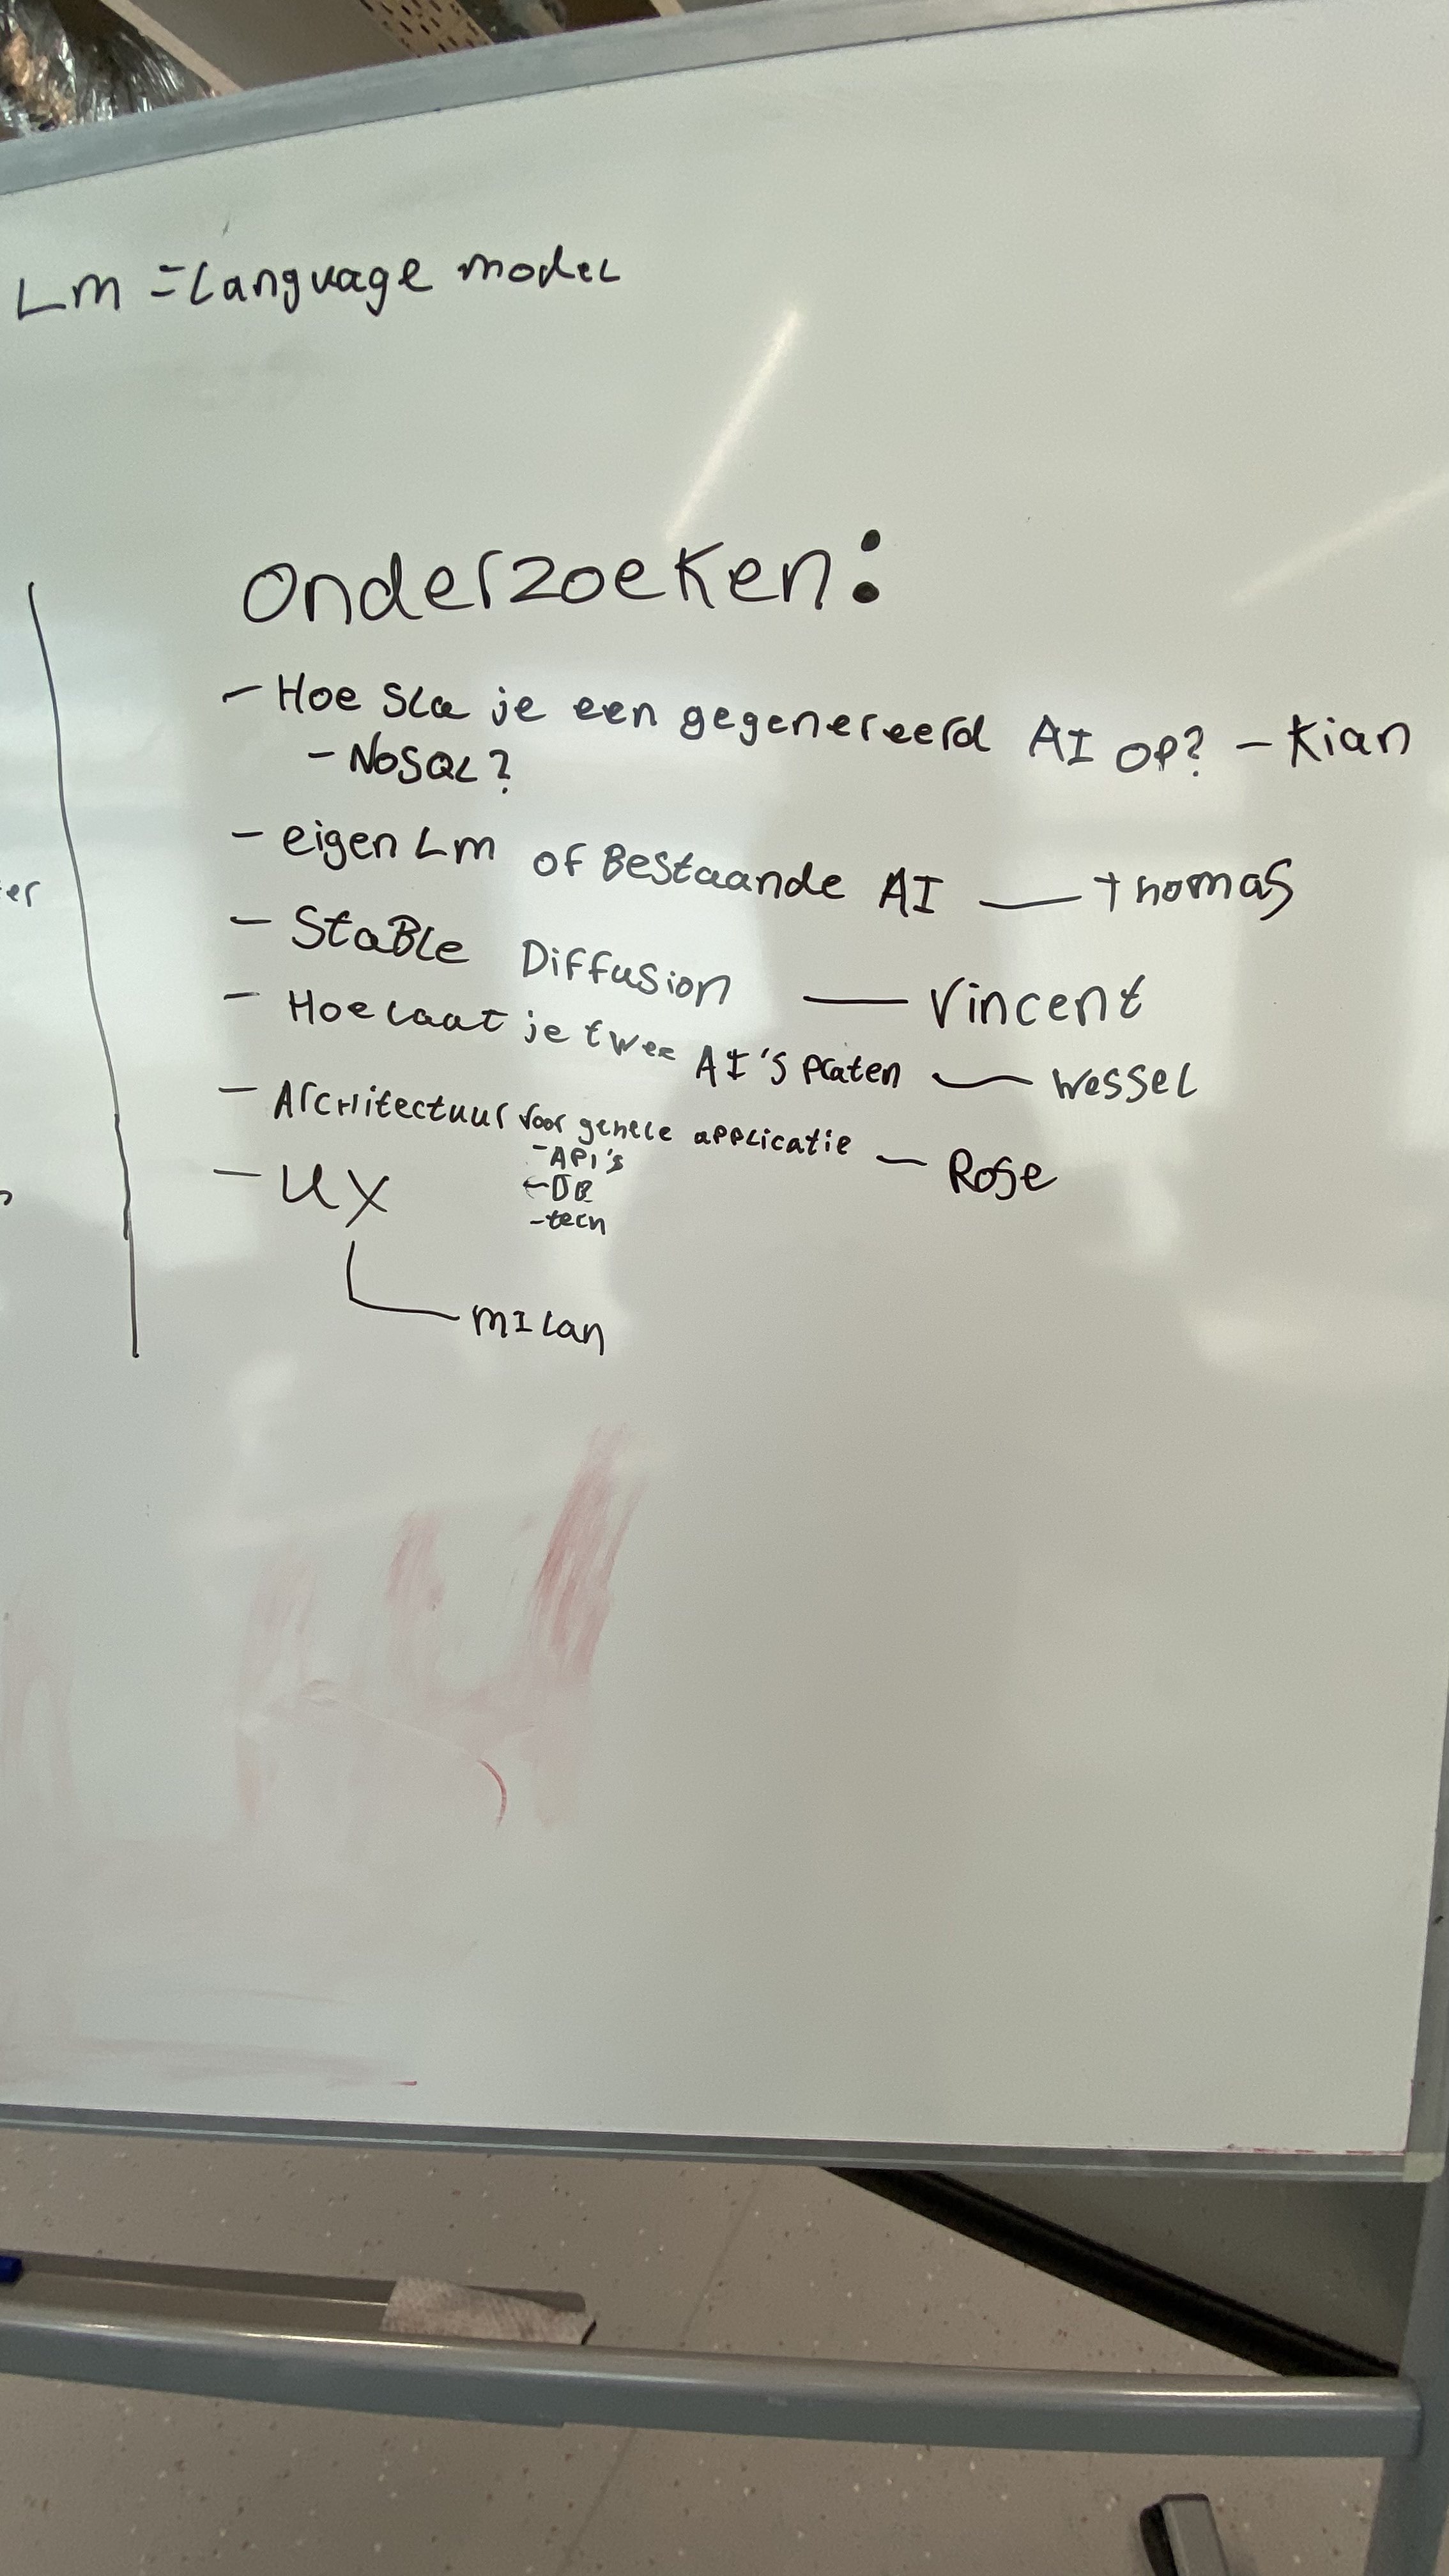 Lm = Language model
Onderzoeken:
- Hoe sla je een gegenereerd AI op? - Kian
- NoSQL?
- eigen Lm of Bestaande AI — Thomas
- Stable Diffusion — Vincent
- Hoe laat je twee AI's praten — Wessel
- Architectuur voor gehele applicatie — Rose
- API's
- DB
- tech
- UX
Milan
er